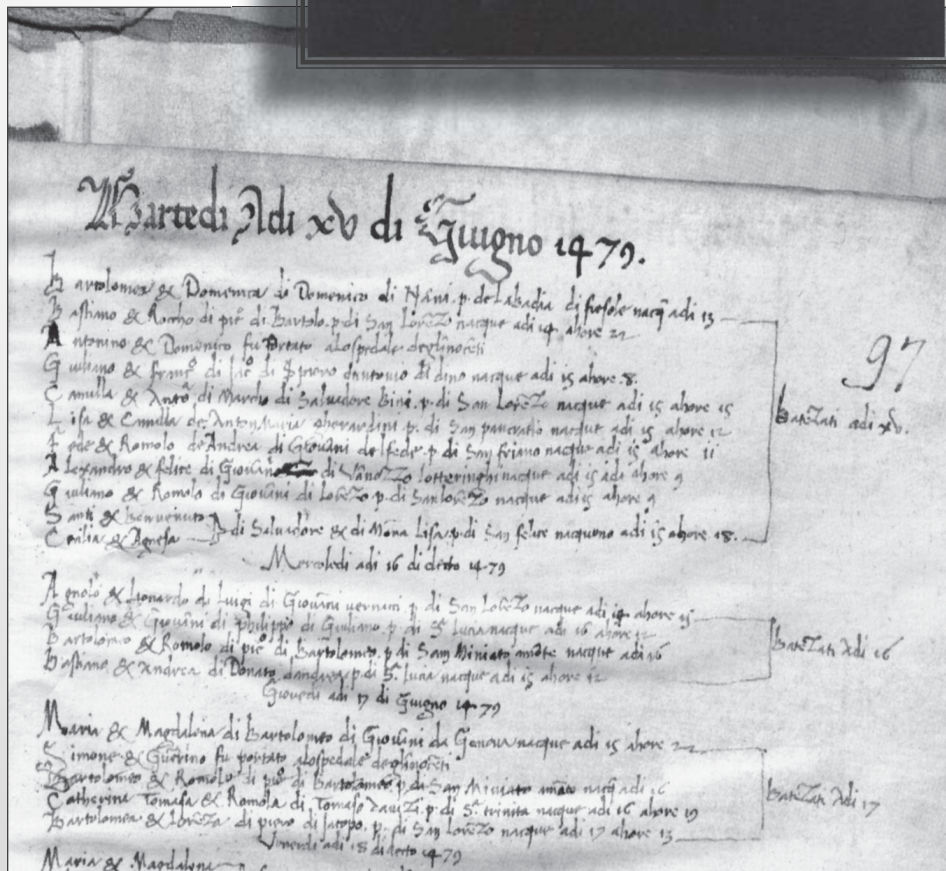 Martedi Adi xv di Giugno 1479.
Bartolomea & Domenica di Domenico di Nãni. p. de Labadia di fiesole nacq adi 13
Bastiano & Roccho di pie° di Bartolo. p. di San Lorẽzo nacque adi 14 ahore 22
Antonino & Domenico fu portato alospedale deglinocẽti
Giuliano & Franc° di Iac° di Piero dantonio dino nacque adi 15 ahore 8.
Camilla & Anto° di Marcho di Salvadore Bini. p. di San Lorẽzo nacque adi 15 ahore 15
Lisa & Camilla de Anton Maria gherardini p. di San pancratio nacque adi 15 ahore 12
Fede & Romolo de Andrea di Giovãni delfede. p. di San friano nacque adi 15 ahore 11
Alexandro & felice di Giovãni di Vãnozzo lotteringhi nacque adi 15 adi ahore 9
Giuliano & Romolo di Giovãni di Lorẽzo p. di San lorẽzo nacque adi 15 ahore 9
Santi & Benvenuto
Cecilia & Agnesa di Salvadore & di Mona Lisa. p. di San felice nacqueno adi 15 ahore 18.
batezati adi xv.
97
Mercoledi adi 16 di detto 1479
Agnolo & Lionardo di Luigi di Giovãni vernacci p. di San Lorẽzo nacque adi 14 ahore 15
Giuliano & Giovãni di philippo di Giuliano. p. di S. Lucia nacque adi 16 ahore 12
Bartolomeo & Romolo di pie° di Bartolomeo. p. di San Miniato nacque adi 16
Bastiano & Andrea di Donato dandrea p. di S. lucia nacque adi 15 ahore 12
batezati Adi 16
Giovedi adi 17 di Giugno 1479
Maria & Magdalena di Bartolomeo di Giovãni da Genova nacque adi 15 ahore 22
Simone & Guerino fu portato alospedale deglinocẽti
Bartolomeo & Romolo di pie° di Bartolomeo. p. di San Miniato nacq adi 16
Catherina Tomasa & Romola di Tomaso davizi. p. di S. trinita nacque adi 16 ahore 19
Bartolomea & lorẽza di piero di Jacopo. p. di San Lorẽzo nacque adi 17 ahore 13
batezati Adi 17
Venerdi adi 18 di detto 1479
Maria & Magdalena